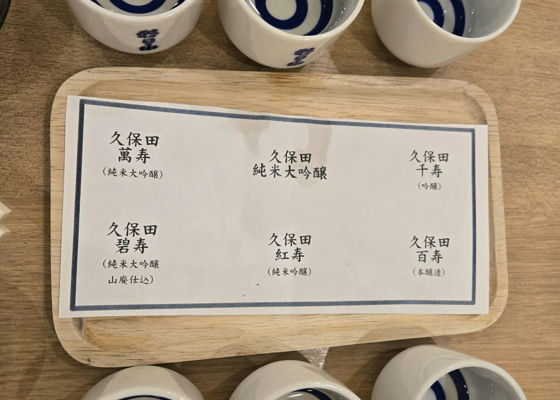 久保田
萬寿
(純米大吟醸)
久保田
純米大吟醸
久保田
千寿
(吟醸)
久保田
碧寿
(純米大吟醸
山廃仕込)
久保田
紅寿
(純米吟醸)
久保田
百寿
(本醸造)